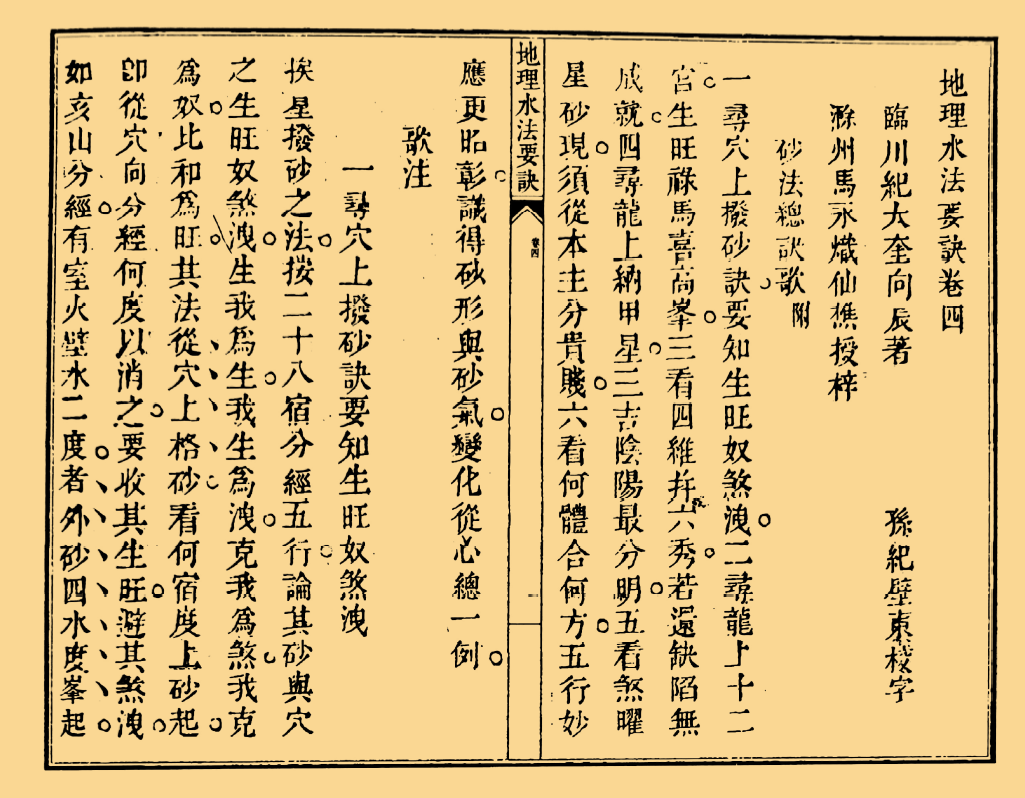 地理水法要訣卷四
臨川紀大奎向辰著
孫紀壁東校字
滁州馬永熾仙樵授梓
砂法總訣歌附
一尋穴上撥砂訣要知生旺奴煞洩二尋龍上十二
宮生旺祿馬喜高峯三看四維并六秀若還缺陷無
成就四尋龍上納甲星三吉陰陽最分明五看煞曜
星砂現須從本主分貴賤六看何體合何方五行妙
應更昭彰識得砂形與砂氣變化從心總一例
地理水法要訣
卷四
歌注
一尋穴上撥砂訣要知生旺奴煞洩
挨星撥砂之法按二十八宿分經五行論其砂與穴
之生旺奴煞洩生我爲生我生爲洩克我爲煞我克
爲奴比和爲旺其法從穴上格砂看何宿度上砂起
卽從穴向分經何度以消之要收其生旺避其煞洩
如亥山分經有室火壁水二度者外砂四水度峯起